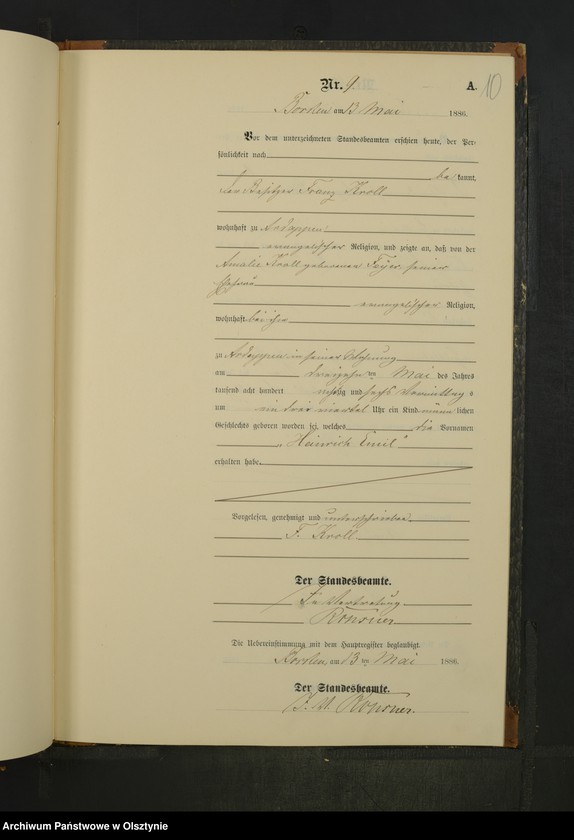 Nr. 9
A. 10
am 13 Mai 1886.
Vor dem unterzeichneten Standesbeamten erschien heute, der Per-
sönlichkeit nach
be kannt,
der Besitzer Franz Kroll
wohnhaft zu
evangelischer Religion, und zeigte an, daß von der
Amalie Kroll geborenen seiner
Ehefrau
evangelischer Religion,
wohnhaft bei ihm
zu in seiner Wohnung
am dreizehn ten Mai des Jahres
tausend acht hundert achtzig und sechs Vormittag s
um ein drei viertel Uhr ein Kind männ lichen
Geschlechts geboren worden sei, welches die Vornamen
„Heinrich Emil“
erhalten habe.
Vorgelesen, genehmigt und unterschrieben
F. Kroll
Der Standesbeamte.
In Vertretung
Die Uebereinstimmung mit dem Hauptregister beglaubigt.
am 13 ten Mai 1886.
Der Standesbeamte.
Archiwum Państwowe w Olsztynie